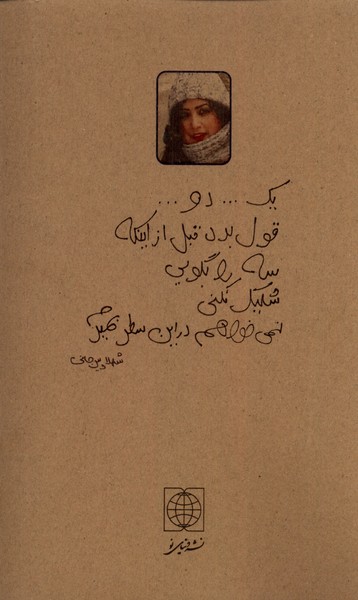 یک ... دو ...
قول بده قبل از اینکه
سه را بگویی
شلیک نکنی
نمی‌خواهم در این سطر بمیرم
نشر دنیای نو